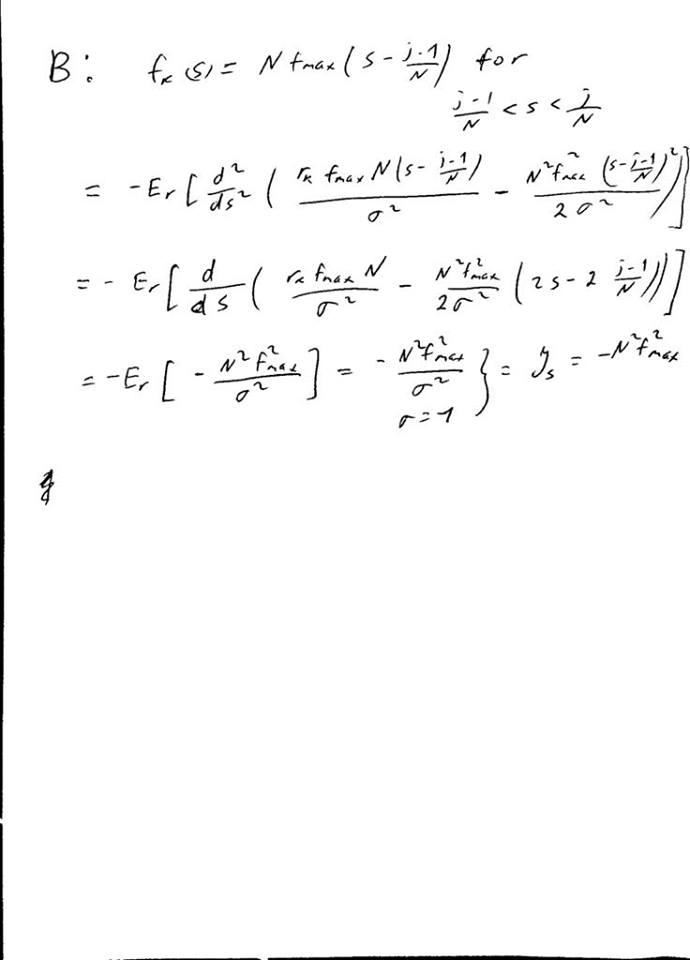 B: fₖ(s) = N fmax (s - (j-1)/N) for
(j-1)/N < s < j/N
= -Eᵣ[ d²/ds² ( rₖ fmax N(s - (j-1)/N) / σ² - N²f²max (s - (j-1)/N)² / 2σ² ) ]
= - Eᵣ[ d/ds ( rₖ fmax N / σ² - N²f²max / 2σ² (2s - 2 (j-1)/N) ) ]
= -Eᵣ [ - N²f²max / σ² ] = - N²f²max / σ² } = Jₛ = -N²f²max
σ = 1